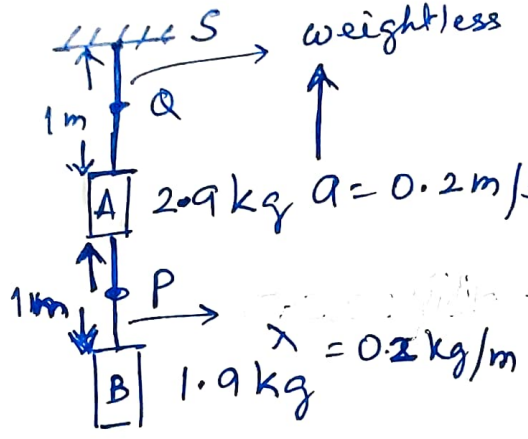 S
weightless
Q
1 m
A 2.9 kg a = 0.2 m/
P
1 m
λ = 0.2 kg/m
B 1.9 kg